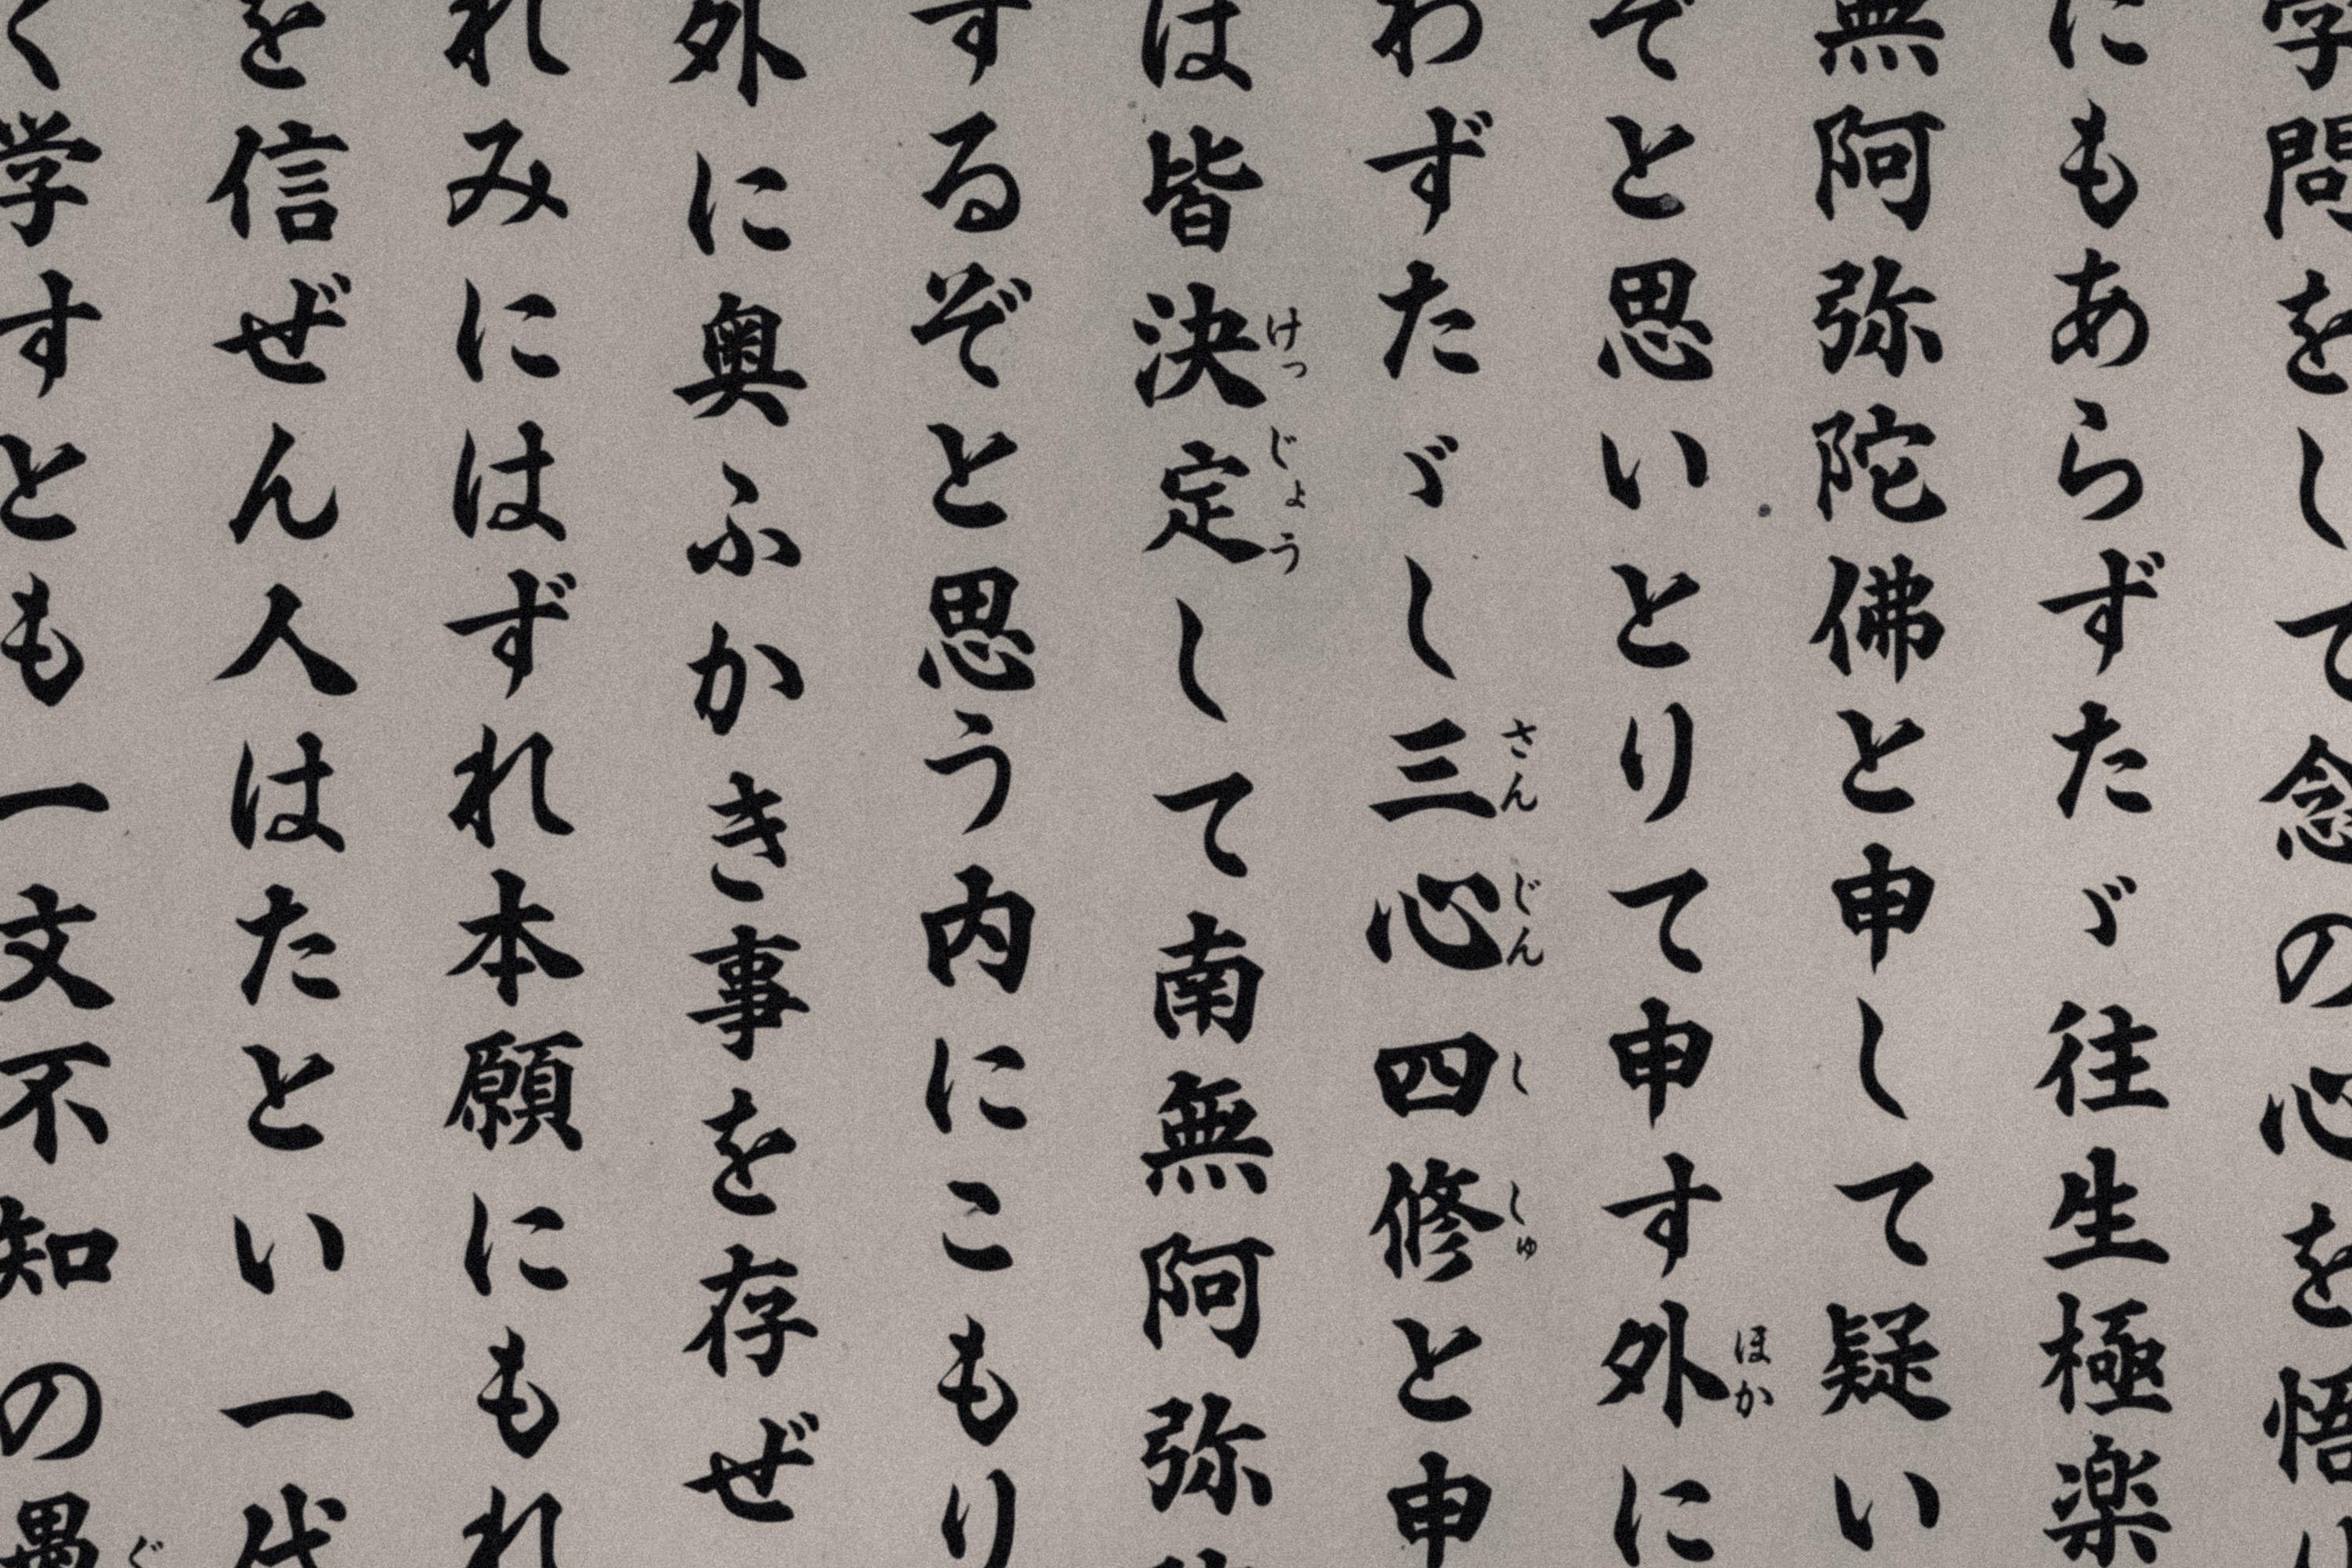 学問をして念の心を悟り
にもあらずたゞ往生極楽
無阿弥陀佛と申して疑い
ぞと思いとりて申す外に
わずたゞし三心四修と申
は皆決定して南無阿弥陀
するぞと思う内にこもり
外に奥ふかき事を存ぜ
れみにはずれ本願にもれ
を信ぜん人はたとい一代
く学すとも一文不知の愚
けつ
じょう
さん
じん
し
しゅ
ほか
ぐ